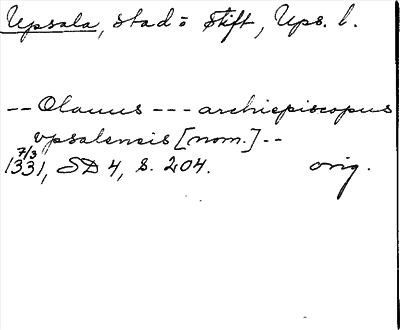 Upsala, stad o Stift, Ups. l.
-- Olauus --- archiepiscopus
vpsalensis [nom.] --
7/3
1331, SD 4, s. 204. orig.